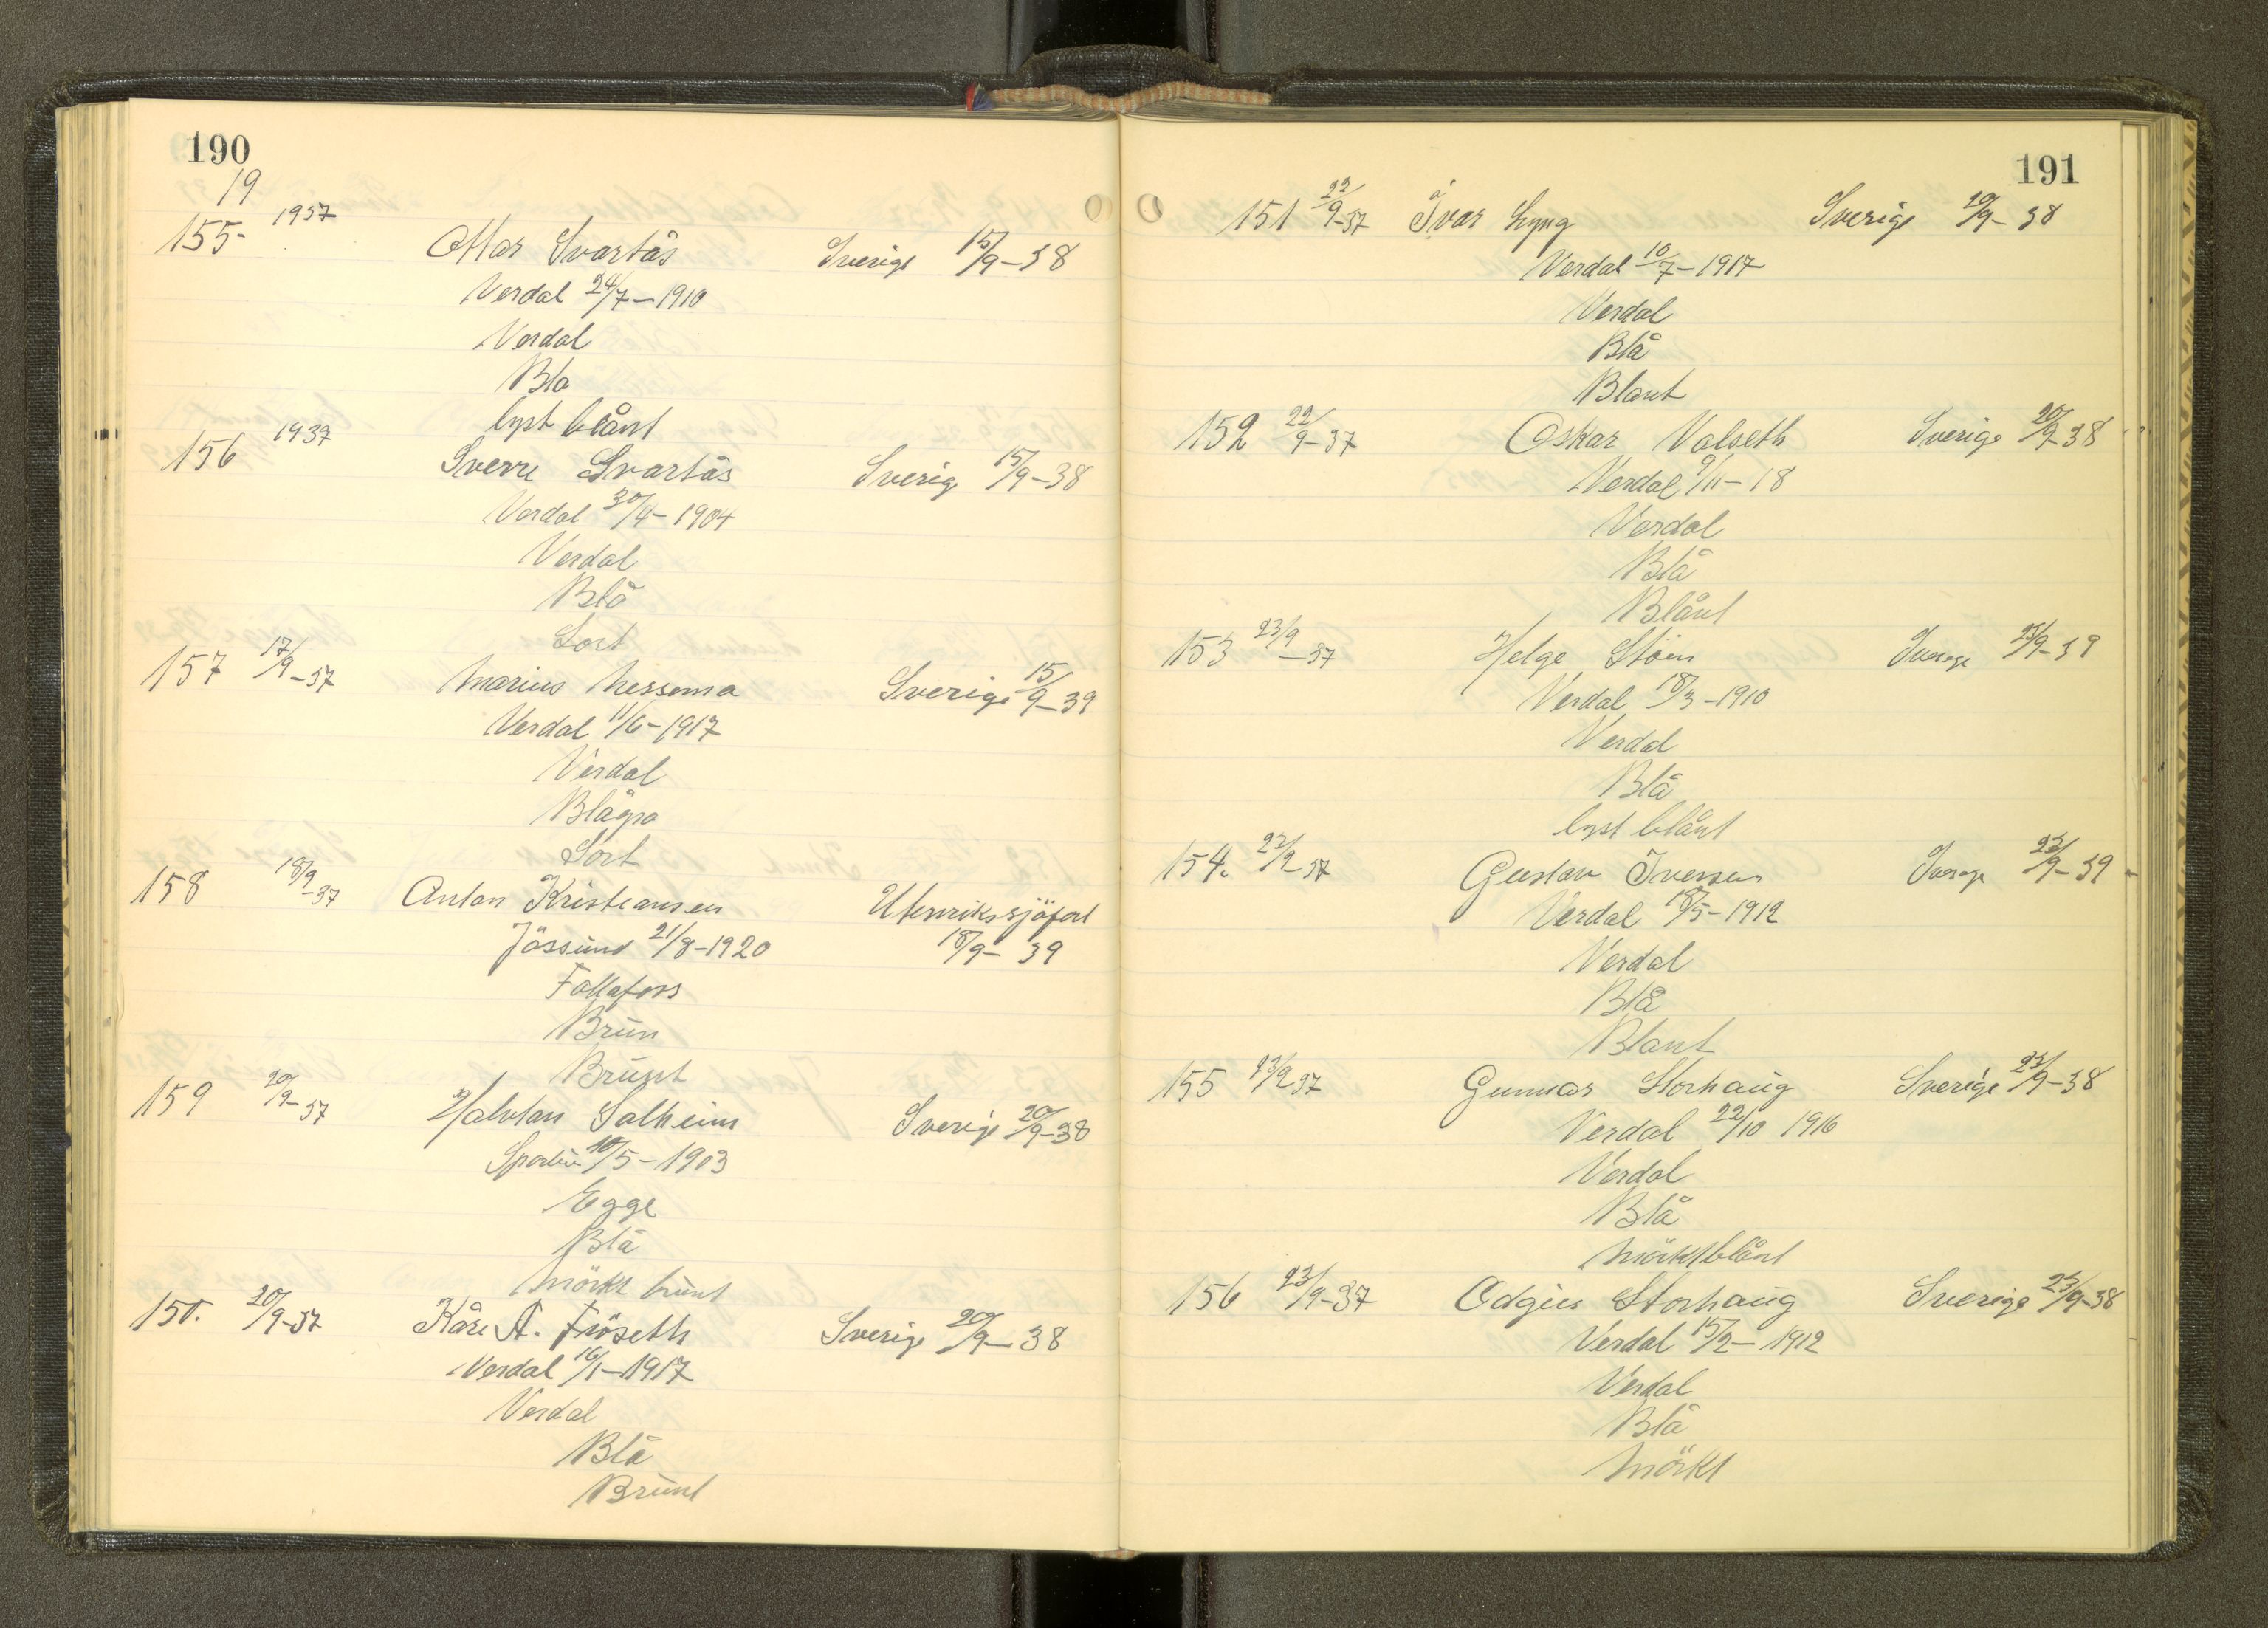 190
19
155- 1937 Ottar Svartås Sverige 15/9-38
Verdal 24/7-1910
Verdal
Bla
lyst blånt
156 1937 Sverre Svartås Sverig 15/9-38
Verdal 30/4-1904
Verdal
Blå
Sort
157 17/9-37 Marius Nessemo Sverige 15/9-39
Verdal 11/6-1917
Verdal
Blågra
Sort
158 18/9-37 Anton Kristiansen Utenrikssjöfart
Jössund 21/8-1920 18/9-39
Follafoss
Brun
Brunt
159 20/9-37 Halvtan Solheim Sverige 20/9-38
Sparbu 10/5-1903
Egge
Blå
Mörkt brunt
150. 20/9-37 Kåre A. Fröseth Sverige 20/9-38
Verdal 16/1-1917
Verdal
Blå
Brunt
191
151 22/9-37 Ivar Lyng Sverige 20/9-38
Verdal 10/7-1917
Verdal
Blå
Blant
152 22/9-37 Oskar Valseth Sverige 20/9-38
Verdal 9/11-18
Verdal
Blå
Blånt
153 23/9-37 Helge Stöen Sverige 23/9-39
Verdal 18/3-1910
Verdal
Blå
lyst blånt
154. 23/9-37 Gustav Iversen Sverige 23/9-39
Verdal 18/5-1912
Verdal
Blå
Blant
155 23/9 37 Gunnar Storhaug Sverige 23/9-38
Verdal 22/10 1916
Verdal
Blå
mörktblånt
156 23/9-37 Odgeir Storhaug Sverige 23/9-38
Verdal 15/2-1912
Verdal
Blå
Mörkt